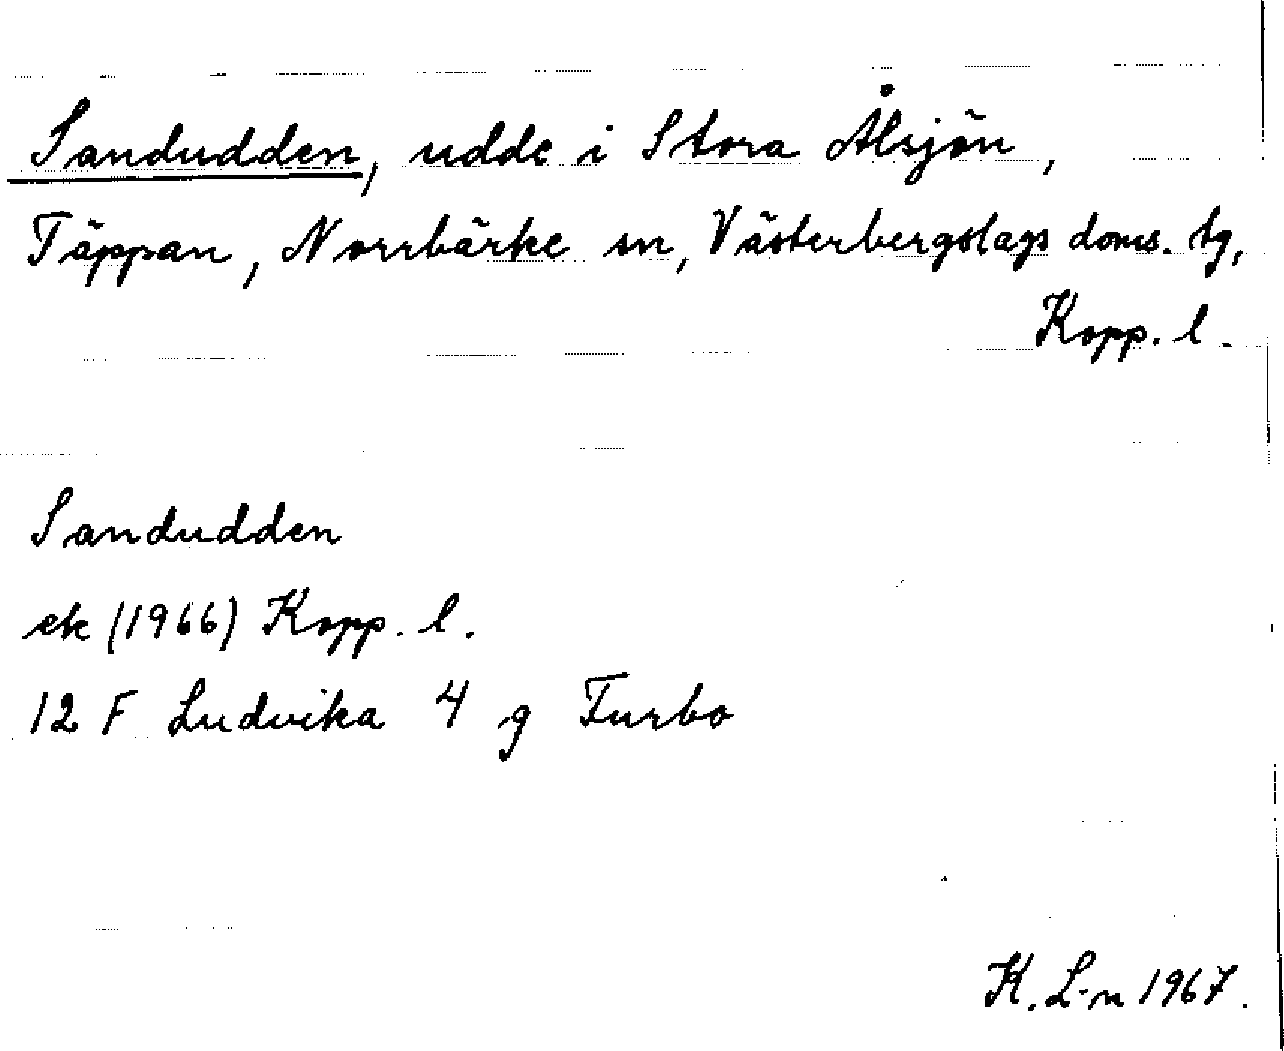 Sandudden, udde i Stora Ålsjön,
Täppan, Norrbärke sn, Västerbergslags doms. tg,
Kopp. l.
Sandudden
ek (1966) Kopp. l.
12 F Ludvika 4 g Turbo
K. L-n 1967.